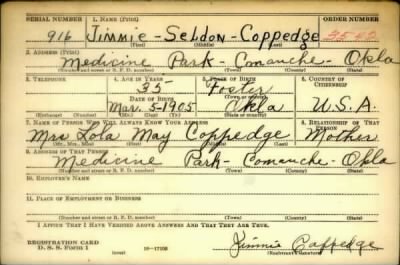 SERIAL NUMBER 1. NAME (Print) ORDER NUMBER
916 Jimmie - Seldon - Coppedge
(First) (Middle) (Last)
2. ADDRESS (Print)
Medicine Park - Comanche - Okla
(Number and street or R. F. D. number) (Town) (County) (State)
3. TELEPHONE 4. AGE IN YEARS 5. PLACE OF BIRTH 6. COUNTRY OF CITIZENSHIP
35 Foster
DATE OF BIRTH (Town or county)
Mar. 5-1905 Okla U.S.A.
(Exchange) (Number) (Mo.) (Day) (Yr.) (State or country)
7. NAME OF PERSON WHO WILL ALWAYS KNOW YOUR ADDRESS 8. RELATIONSHIP OF THAT PERSON
Mrs Lola May Coppedge Mother
(Mr., Mrs., Miss) (First) (Middle) (Last)
9. ADDRESS OF THAT PERSON
Medicine Park - Comanche - Okla
(Number and street or R. F. D. number) (Town) (County) (State)
10. EMPLOYER'S NAME
11. PLACE OF EMPLOYMENT OR BUSINESS
(Number and street or R. F. D. number) (Town) (County) (State)
I AFFIRM THAT I HAVE VERIFIED ABOVE ANSWERS AND THAT THEY ARE TRUE.
REGISTRATION CARD
D. S. S. FORM 1 (over) 16-17105 Jimmie Coppedge
(Registrant's signature)